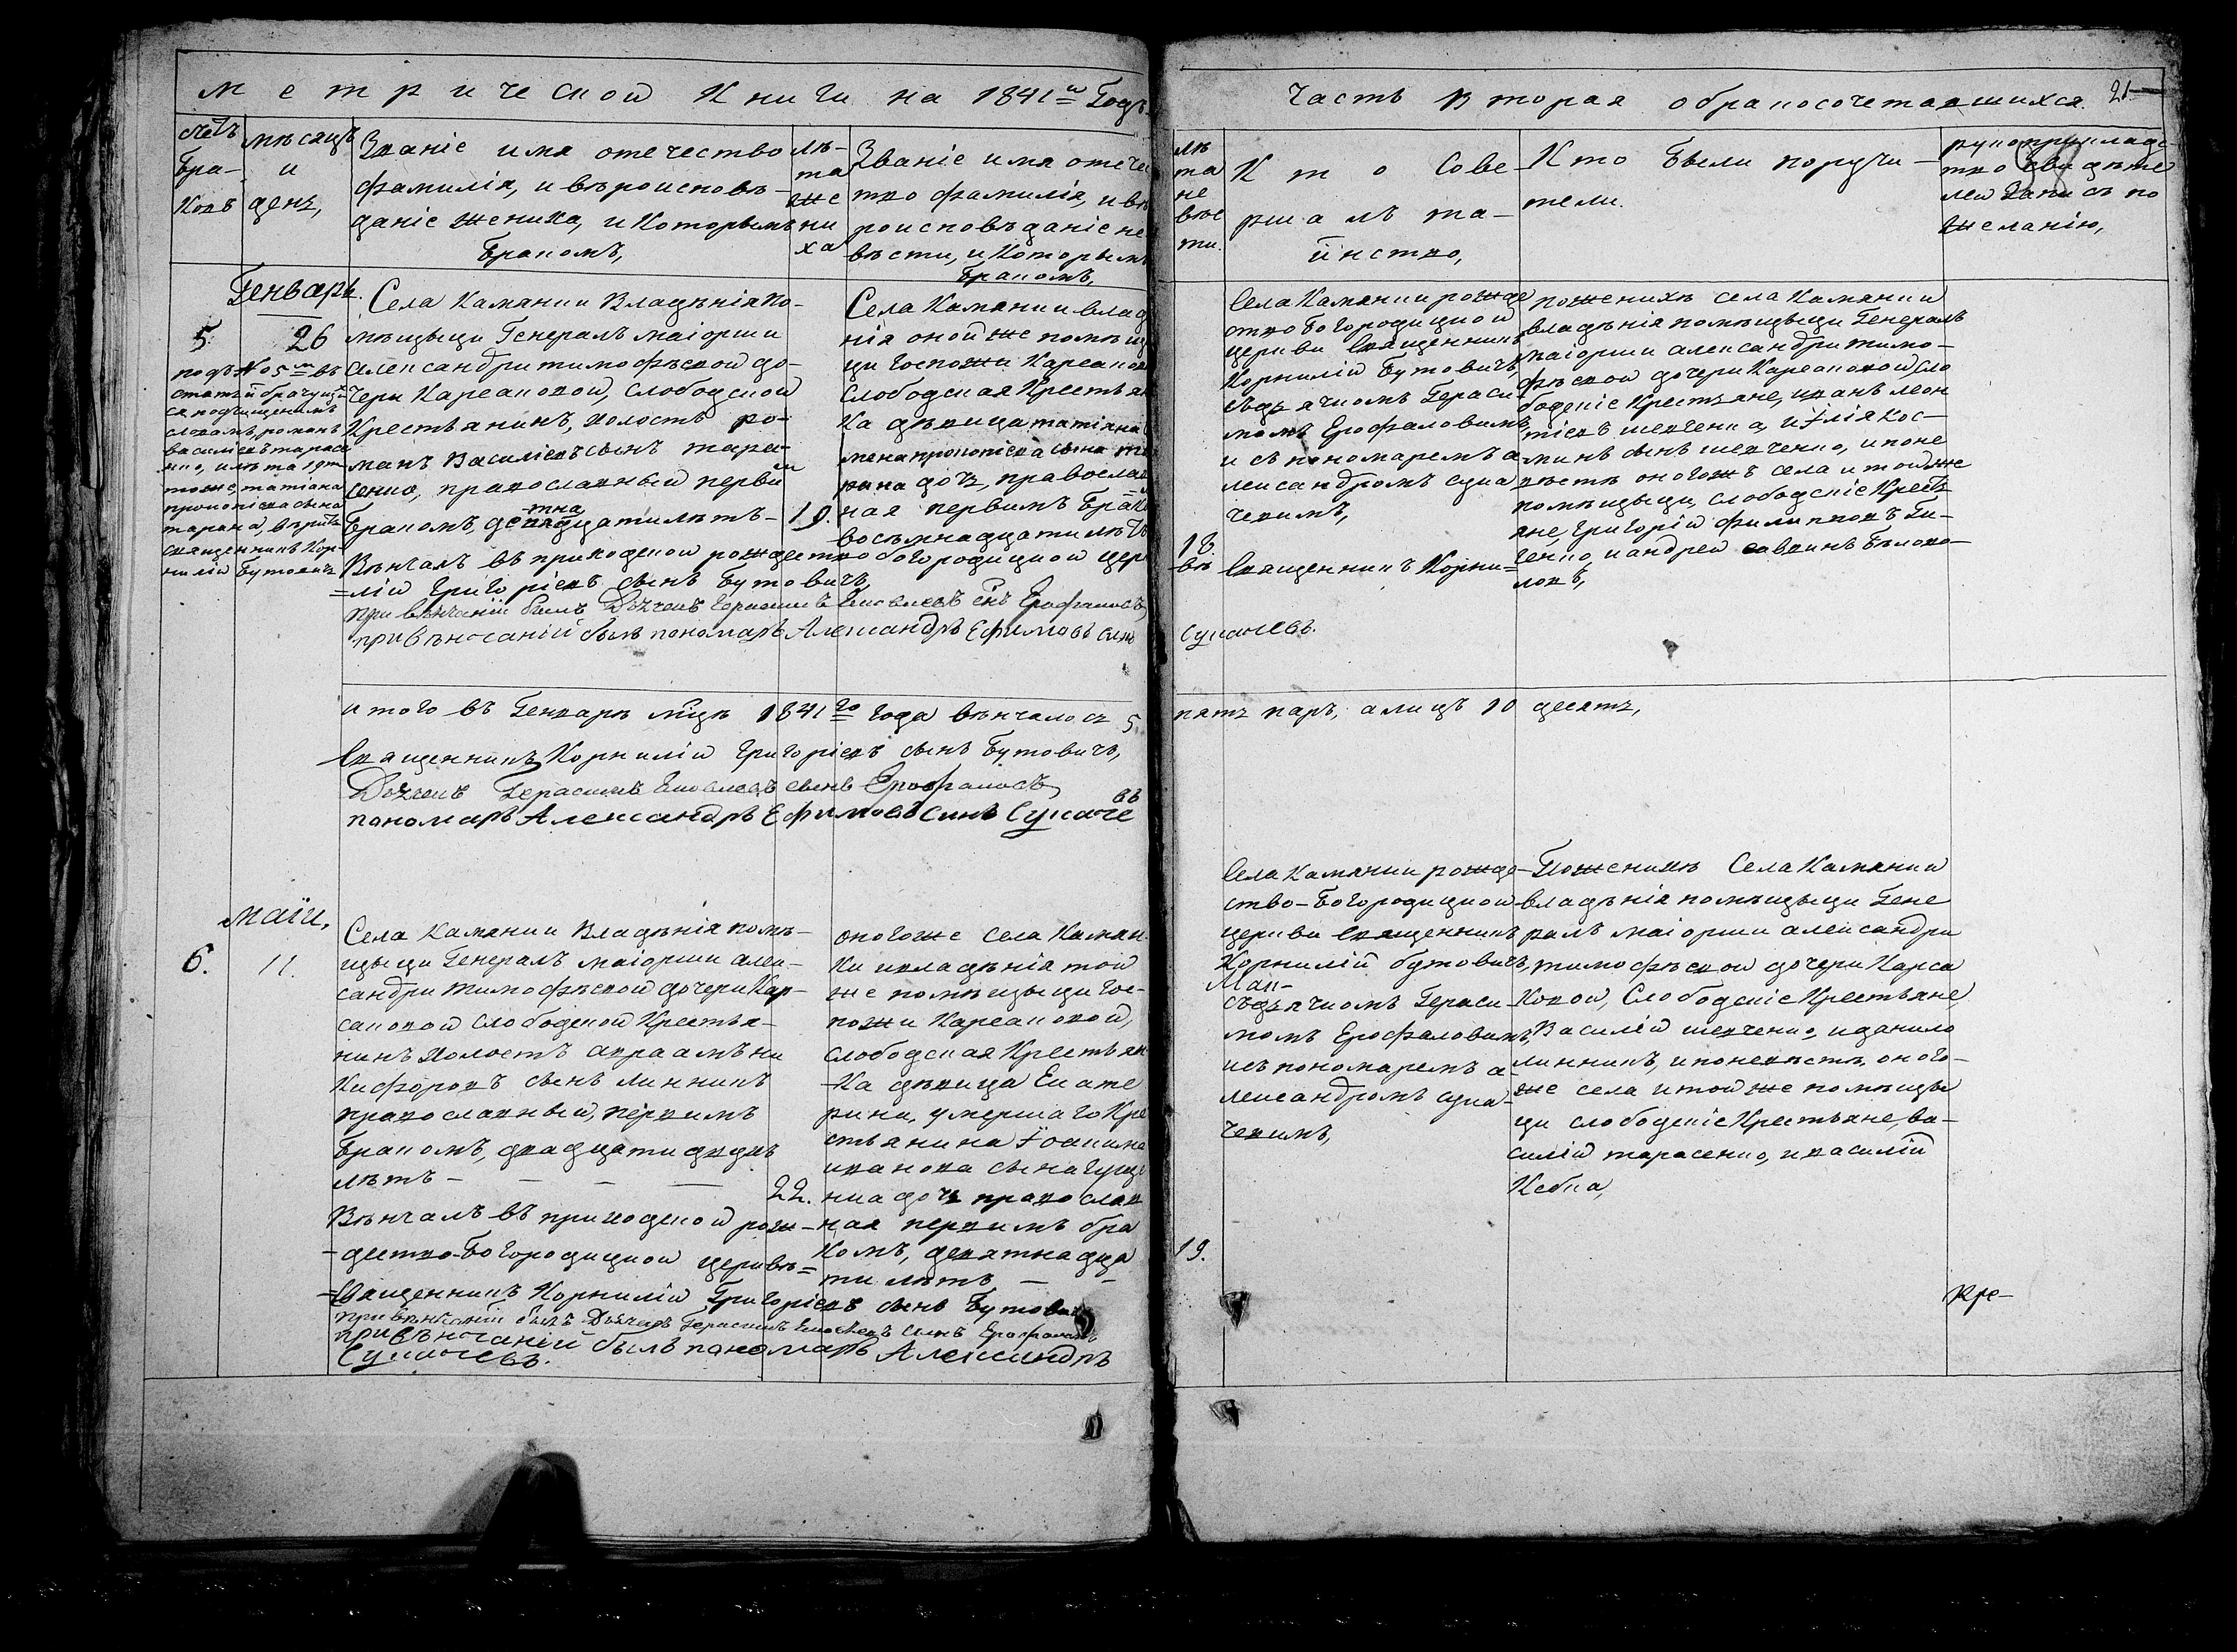 Метрической Книги на 1841й Годъ
Часть Вторая обракосочетавшихся. 21
счетъ браковъ
мѣсяцъ и день,
Званіе имя отечество
фамилія, и вѣроисповѣ-
даніе жениха, и Которымъ
бракомъ,
лѣ-
та
же
ни
ха
Званіе имя отече
тво фамилія, и вѣ
роисповѣданіе не
вѣсти, и Которымъ
бракомъ,
лѣ
та
не
вѣс
ти.
К т о Сове-
ршалъ та-
инство,
Кто были поручи-
тели.
рукоприкладс-
тво свидѣте
лей запись по
желанію,
Генварь.
5
26
подъ №05м въ
статьѣ брачущи
ся подчищеннымъ
словамъ, романъ
василіевъ тарасе
нко, и лѣта 19ть
тоже, татіана
прокопіева сына
тарана, вѣрить
священникъ Кор
нилій Бутовичъ
Села Камянки Владѣнія по-
мѣщыци Генералъ маіорши
александри тимофѣевой до-
чери Карсановой, слободской
Крестьянинъ, холостъ ро-
манъ Василіевъ сынъ тара-
сенко, православный первим
бракомъ, девятнадцати лѣтъ- 19.
Вѣнчалъ въ приходской рождество богородицкой церк
вѣ священникъ Корни=
=лій Григоріевъ сынъ Бутовичъ,
при вѣнчаніи былъ Дѣячокъ Герасимъ Яковлевъ снъ Ерофаловъ
при вѣнчаній былъ пономаръ Александръ Ефимовъ синъ
Сукачевъ.
Села Камянки влад
нія оной же помѣщ
ци госпожи Карсанов
слободская Крестьян
Ка дѣвица татіана
прокопіева сына та
рана дочь, православ
ная первимъ брак
восьмнадцати лѣтъ
18.
Села Камянки рожде
ство богородицкой
церкви Священникъ
Корнилій Бутовичъ,
съ дячкомъ Гераси
момъ Ерофаловимъ,
и съ пономаремъ а
лександромъ сука
чевимъ,
по женихѣ села Камянки
владѣнія помѣщыци Генералъ
маіорши александри тимо-
фѣевой дочери Карсановой, сло
бодскіе Крестяне, иванъ леон
тіевъ шевченко, и Илія кос-
минъ сынъ шевченко, и поне
вѣстѣ оногожъ села и тойже
помѣщыци, слободскіе Кресть
яне, григорій филипповъ
и андрей саввинъ
итого въ Генварѣ мцѣ 1841го года вѣнчалось 5
пять паръ, а лицъ 10 десять,
Священникъ Корнилій Григоріевъ сынъ Бутовичъ,
Дѣячокъ Герасимъ Яковлевъ сынъ Ерофаловъ
пономаръ Александръ Ефимовъ синъ Сукаче
въ
маіи,
6.
11.
Села Камянки Владѣнія помѣ-
щыци Генералъ маіорши алек-
сандри тимофѣевой дочери Кар-
сановой слободской Крестья-
нинъ холостъ авраамъ ни
Кифоровъ сынъ линникъ
православный, первимъ
бракомъ, двадцати двухъ
лѣтъ - - - 22.
Вѣнчалъ въ приходской рож-
-дество-Богородицкой церквѣ=
-Священникъ Корнилій Григоріевъ сынъ Бутовичъ
при вѣнчаніи былъ Дѣячокъ Герасимъ Яковлевъ синъ Ерофаловъ
при вѣнчаній былъ пономаръ Александръ
Сукачевъ.
оногоже села Камян
Ки и владѣнія той
же помѣщыци гос-
пожи Карсановой,
слободская Крестьян
-Ка дѣвица Екате
рина, умершаго Кре
стьянина Іоакима
иванова сына
дочь православ
ная первимъ бра
комъ, девятнадца
ти лѣтъ -
19.
Села Камянки рожде-
ство-богородицкой
церкви Священникъ
Корнилій бутовичъ,
съ дьячкомъ Гераси
момъ Ерофаловимъ,
и съ пономаремъ а
лександромъ сука-
чевимъ,
По женихѣ Села Камянки
владѣнія помѣщыци Гене
ралъ маіорши александри
тимофѣевой дочери Карса
новой, Слободскіе Крестьяне,
Василій шевченко, и данило
линникъ, и по невѣстѣ, оного-
же села и той же помѣщы
ци слободскіе Крестьяне, ва-
силій тарасенко, и василій
Кебка,